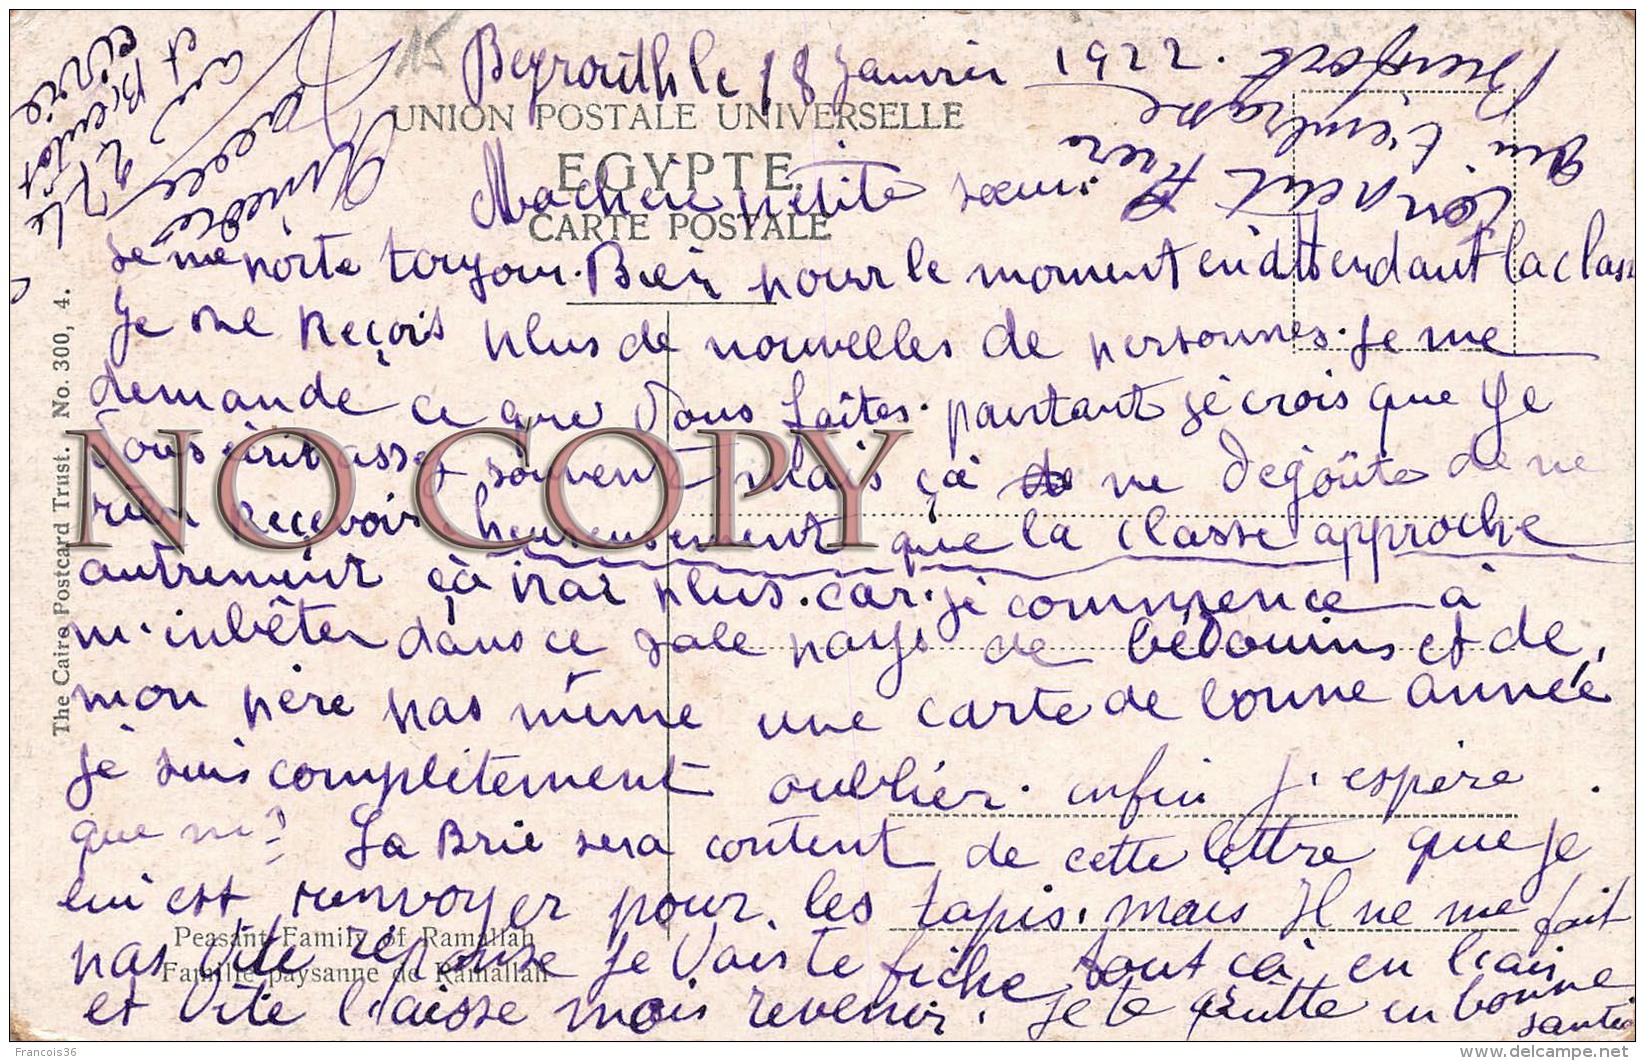 15
Beyrouth le 18 Janvier 1922.
UNION POSTALE UNIVERSELLE
EGYPTE.
CARTE POSTALE
Ma chère petite sœur
Je me porte toujour. Bien pour le moment en attendant la class
Je ne reçois plus de nouvelles de personnes. Je me
demande ce que vous faites. pourtant je crois que Je
vous écrit assez souvent mais çà de me degoûte de ne
rien reçevoir. heureusement que la classe approche
autrement çà irai plus. car. je commence à
m'enbêter dans ce sale pays de bédouins et de
mon père pas même une carte de bonne année
je suis complètement oublier. enfin j'espère
que ni? La Brie sera content de cette lettre que je
lui est renvoyer pour les tapis. mais Il ne me fait
pas vite réponse Je vais te fiche tout çà en l'air
et vite l'aisse mois revenir. Je te quitte en bonne
santé
ton petit Frère
qui t'embrasse
Bien fort
André
et Bientot
ecrire
The Cairo Postcard Trust. No. 300, 4.
Peasant Family of Ramallah
Famille paysanne de Ramallah
NO COPY
Francois36
delcampe.net